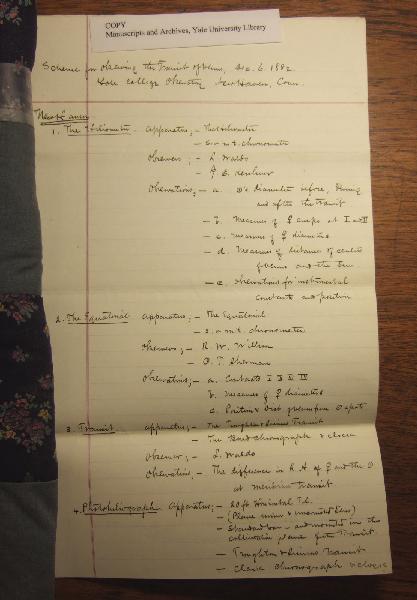 COPY
Manuscripts and Archives, Yale University Library
Scheme for observing the Transit of Venus, Dec. 6. 1882
Yale College Observatory New Haven, Conn.
1. The Heliometer. Apparatus; - The heliometer
- chronometer
Observers; - L. Waldo
Observations; - a. ☉'s diameter before, during
and after the transit
- b. Measures of ♀ cusps at I and III
- c. Measures of ♀ diameter
- d. Measures of distance of centres
of Venus and the Sun
- e. Observations for instrumental
constants and position
2. The Equatorial Apparatus; - The Equatorial
- chronometer
Observers; - R. W. Willson
- O. T. Sherman
Observations; - a. Contacts I II III IV
b. Measures of ♀ diameter
c. Position &
3. Transit. Apparatus; - The Troughton & Simms Transit
- The Bond chronograph & clock
Observer; - L. Waldo
Observations; - The difference in R.A. of ♀ and the ☉
at meridian transit
4. Photoheliograph Apparatus; - 20 ft horizontal
- (Plane mirror & unmounted lens)
- Standard bar - and mounted in the
collimation plane of the Transit
- Troughton & Simms Transit
- Clock chronograph & clock